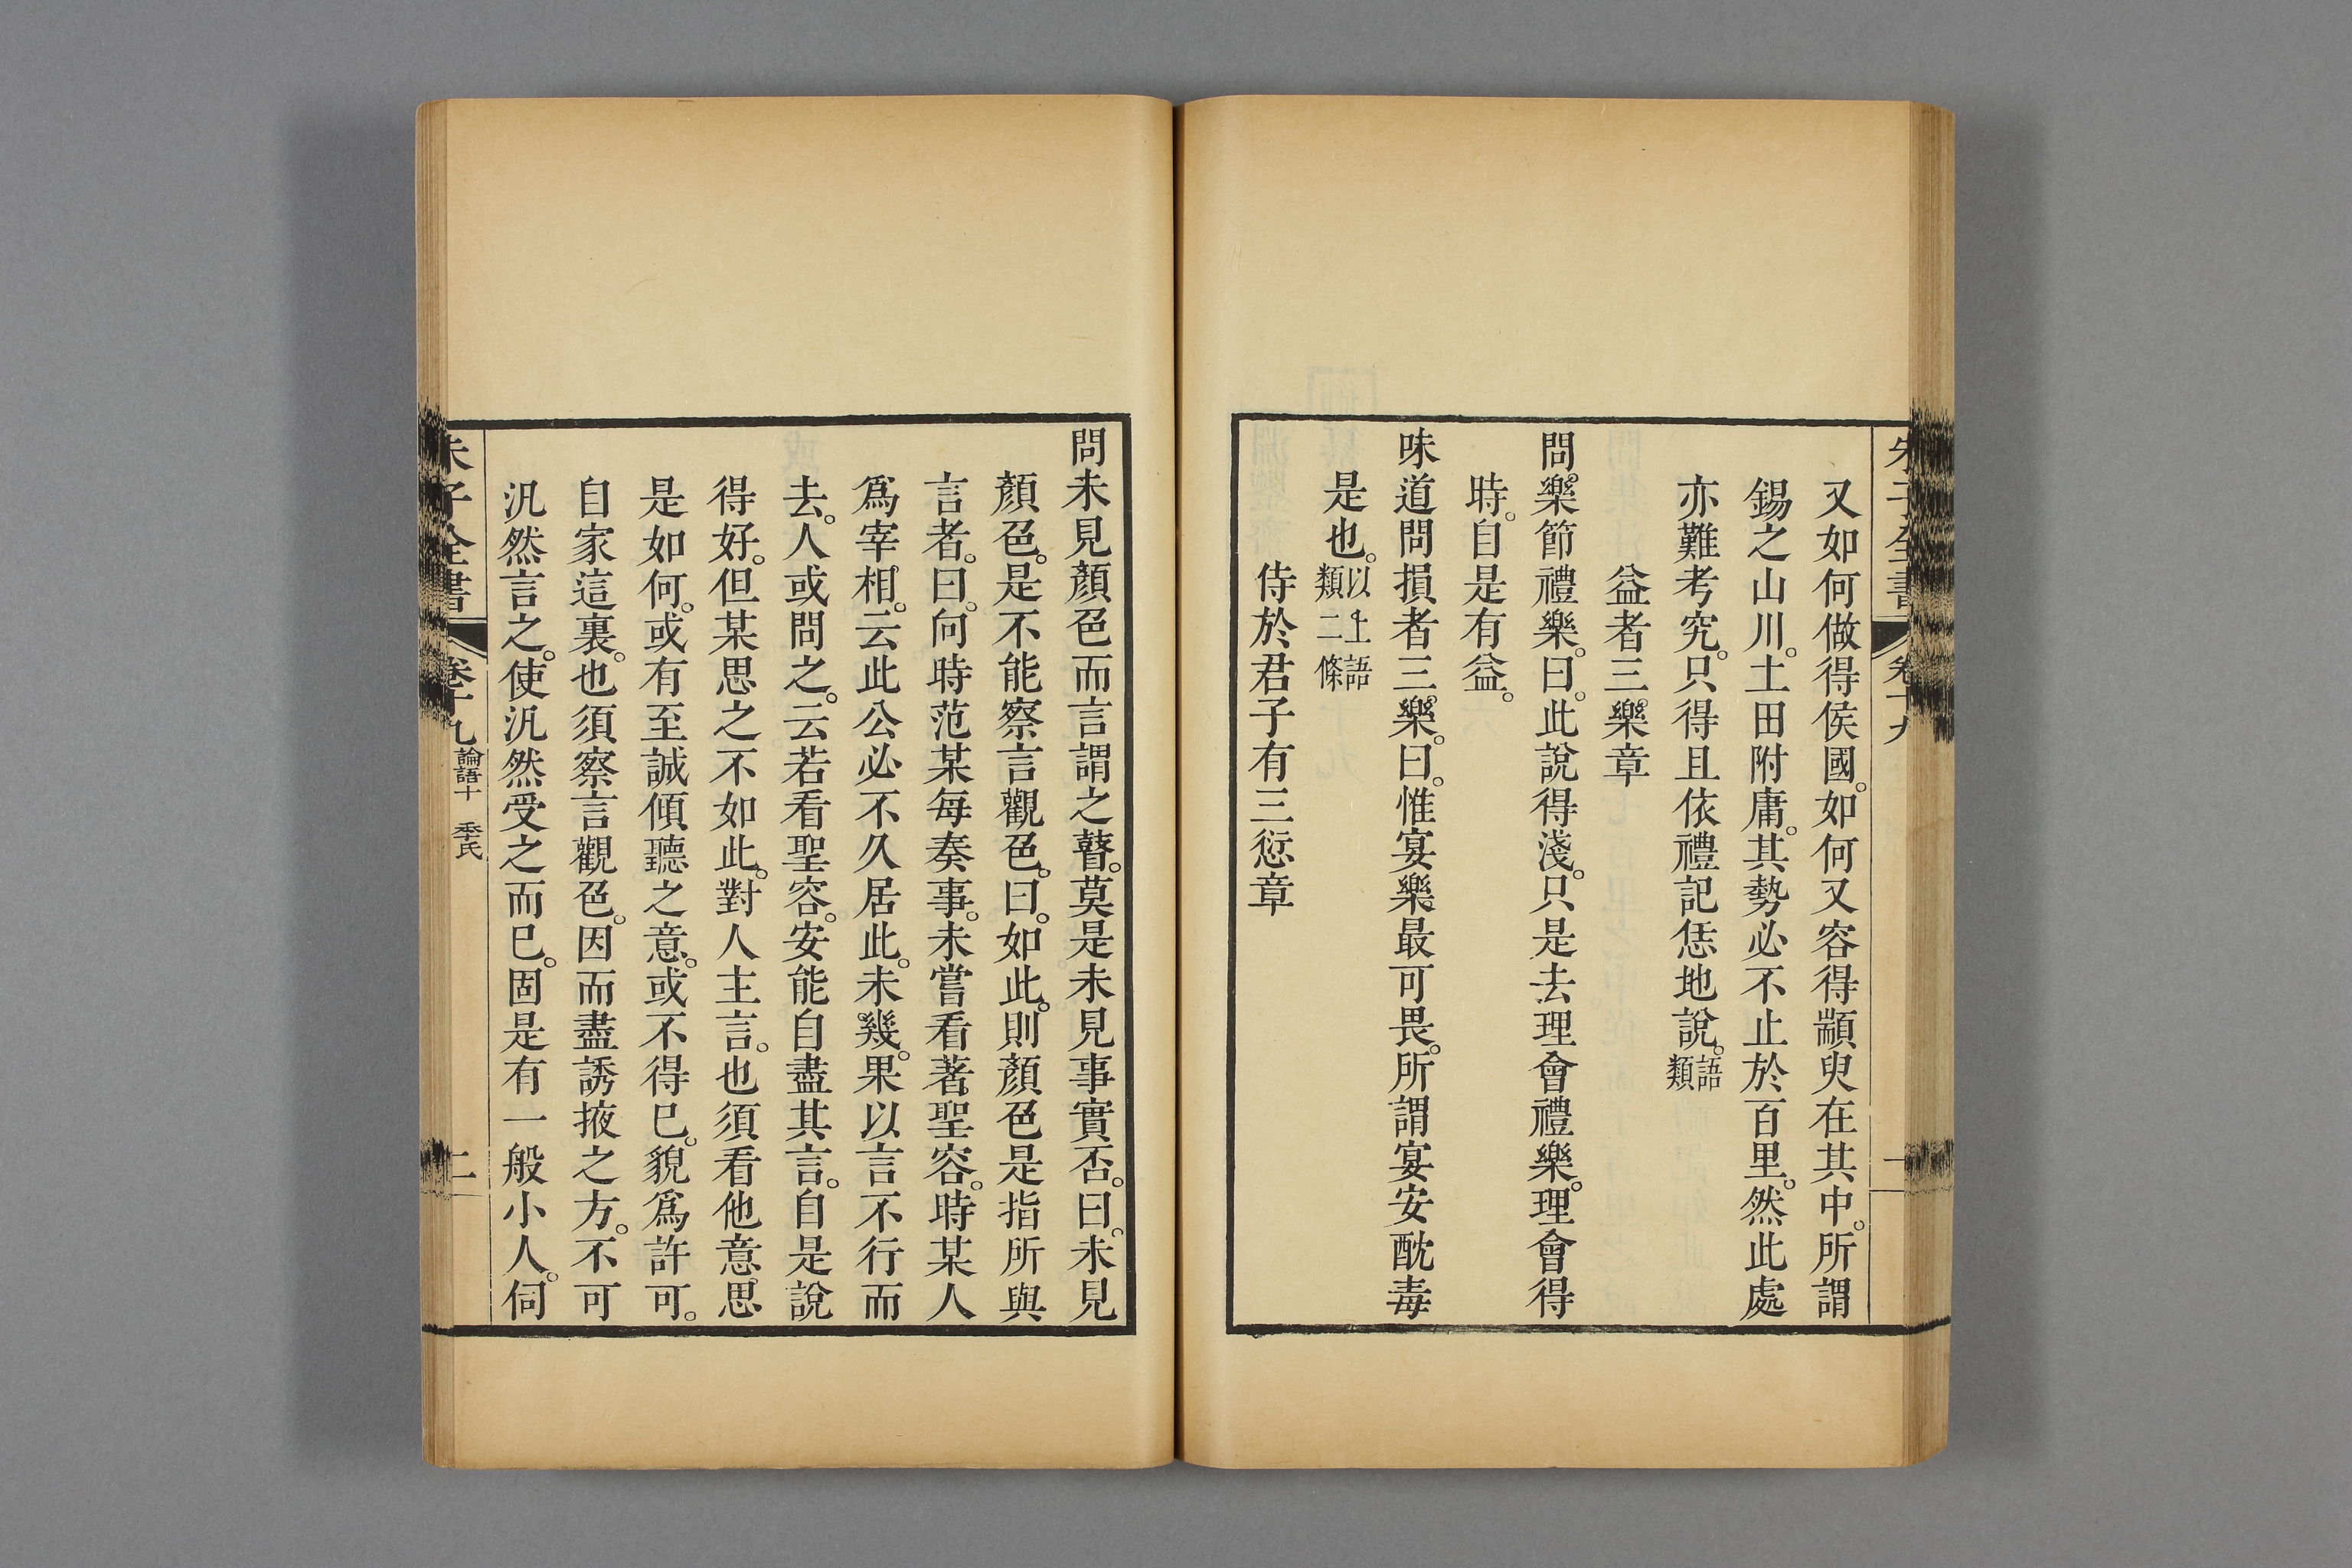 朱子全書 卷十九 一
又如何做得侯國。如何又容得顓臾在其中。所謂
錫之山川。土田附庸。其勢必不止於百里。然此處
亦難考究。只得且依禮記恁地說。語類
益者三樂章
問。樂節禮樂。曰。此說得淺。只是去理會禮樂。理會得
時。自是有益。
味道問損者三樂。曰。惟宴樂最可畏。所謂宴安酖毒
是也。以上語類二條
侍於君子有三愆章
問未見顏色而言謂之瞽。莫是未見事實否。曰。未見
顏色。是不能察言觀色。曰。如此。則顏色是指所與
言者。曰。向時范某每奏事。未嘗看著聖容。時某人
爲宰相。云此公必不久居此。未幾。果以言不行而
去。人或問之。云若看聖容。安能自盡其言。自是說
得好。但某思之不如此。對人主言。也須看他意思
是如何。或有至誠傾聽之意。或不得已。貌爲許可。
自家這裏。也須察言觀色。因而盡誘掖之方。不可
汎然言之。使汎然受之而已。固是有一般小人。伺
朱子全書 卷十九 論語十 季氏 二